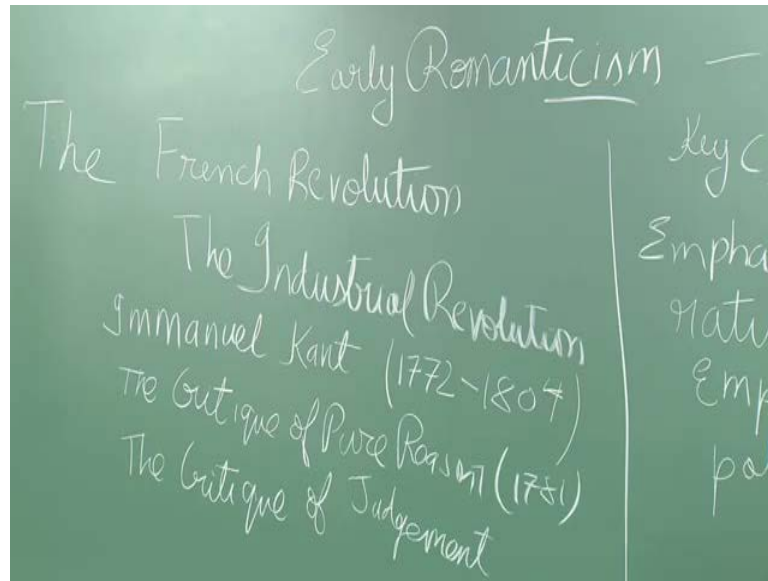 Early Romanticism —
The French Revolution
The Industrial Revolution
Immanuel Kant (1772-1804)
The Critique of Pure Reason (1781)
The Critique of Judgement
Key C
Empha
natu
Emp
pa